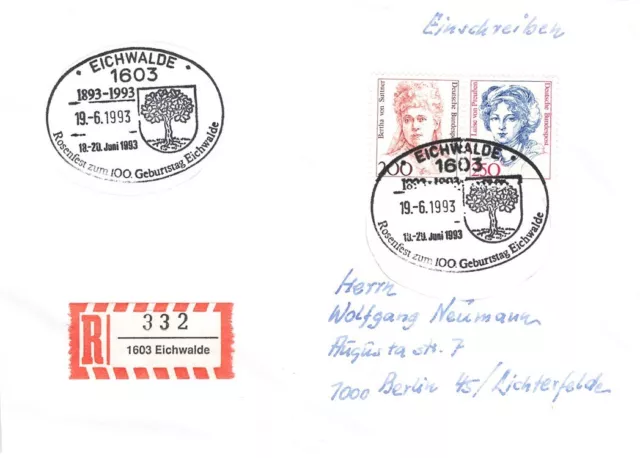 Einschreiben
EICHWALDE
1603
1893-1993
19.-6.1993
18.-20. Juni 1993
Rosenfest zum 100. Geburtstag Eichwalde
Bertha von Suttner
Deutsche Bundespost
200
Luise von Preußen
Deutsche Bundespost
250
EICHWALDE
1603
1893-1993
19.-6.1993
18.-20. Juni 1993
Rosenfest zum 100. Geburtstag Eichwalde
R
332
1603 Eichwalde
Herrn
Wolfgang Neumann
Augusta str. 7
1000 Berlin 45/Lichterfelde